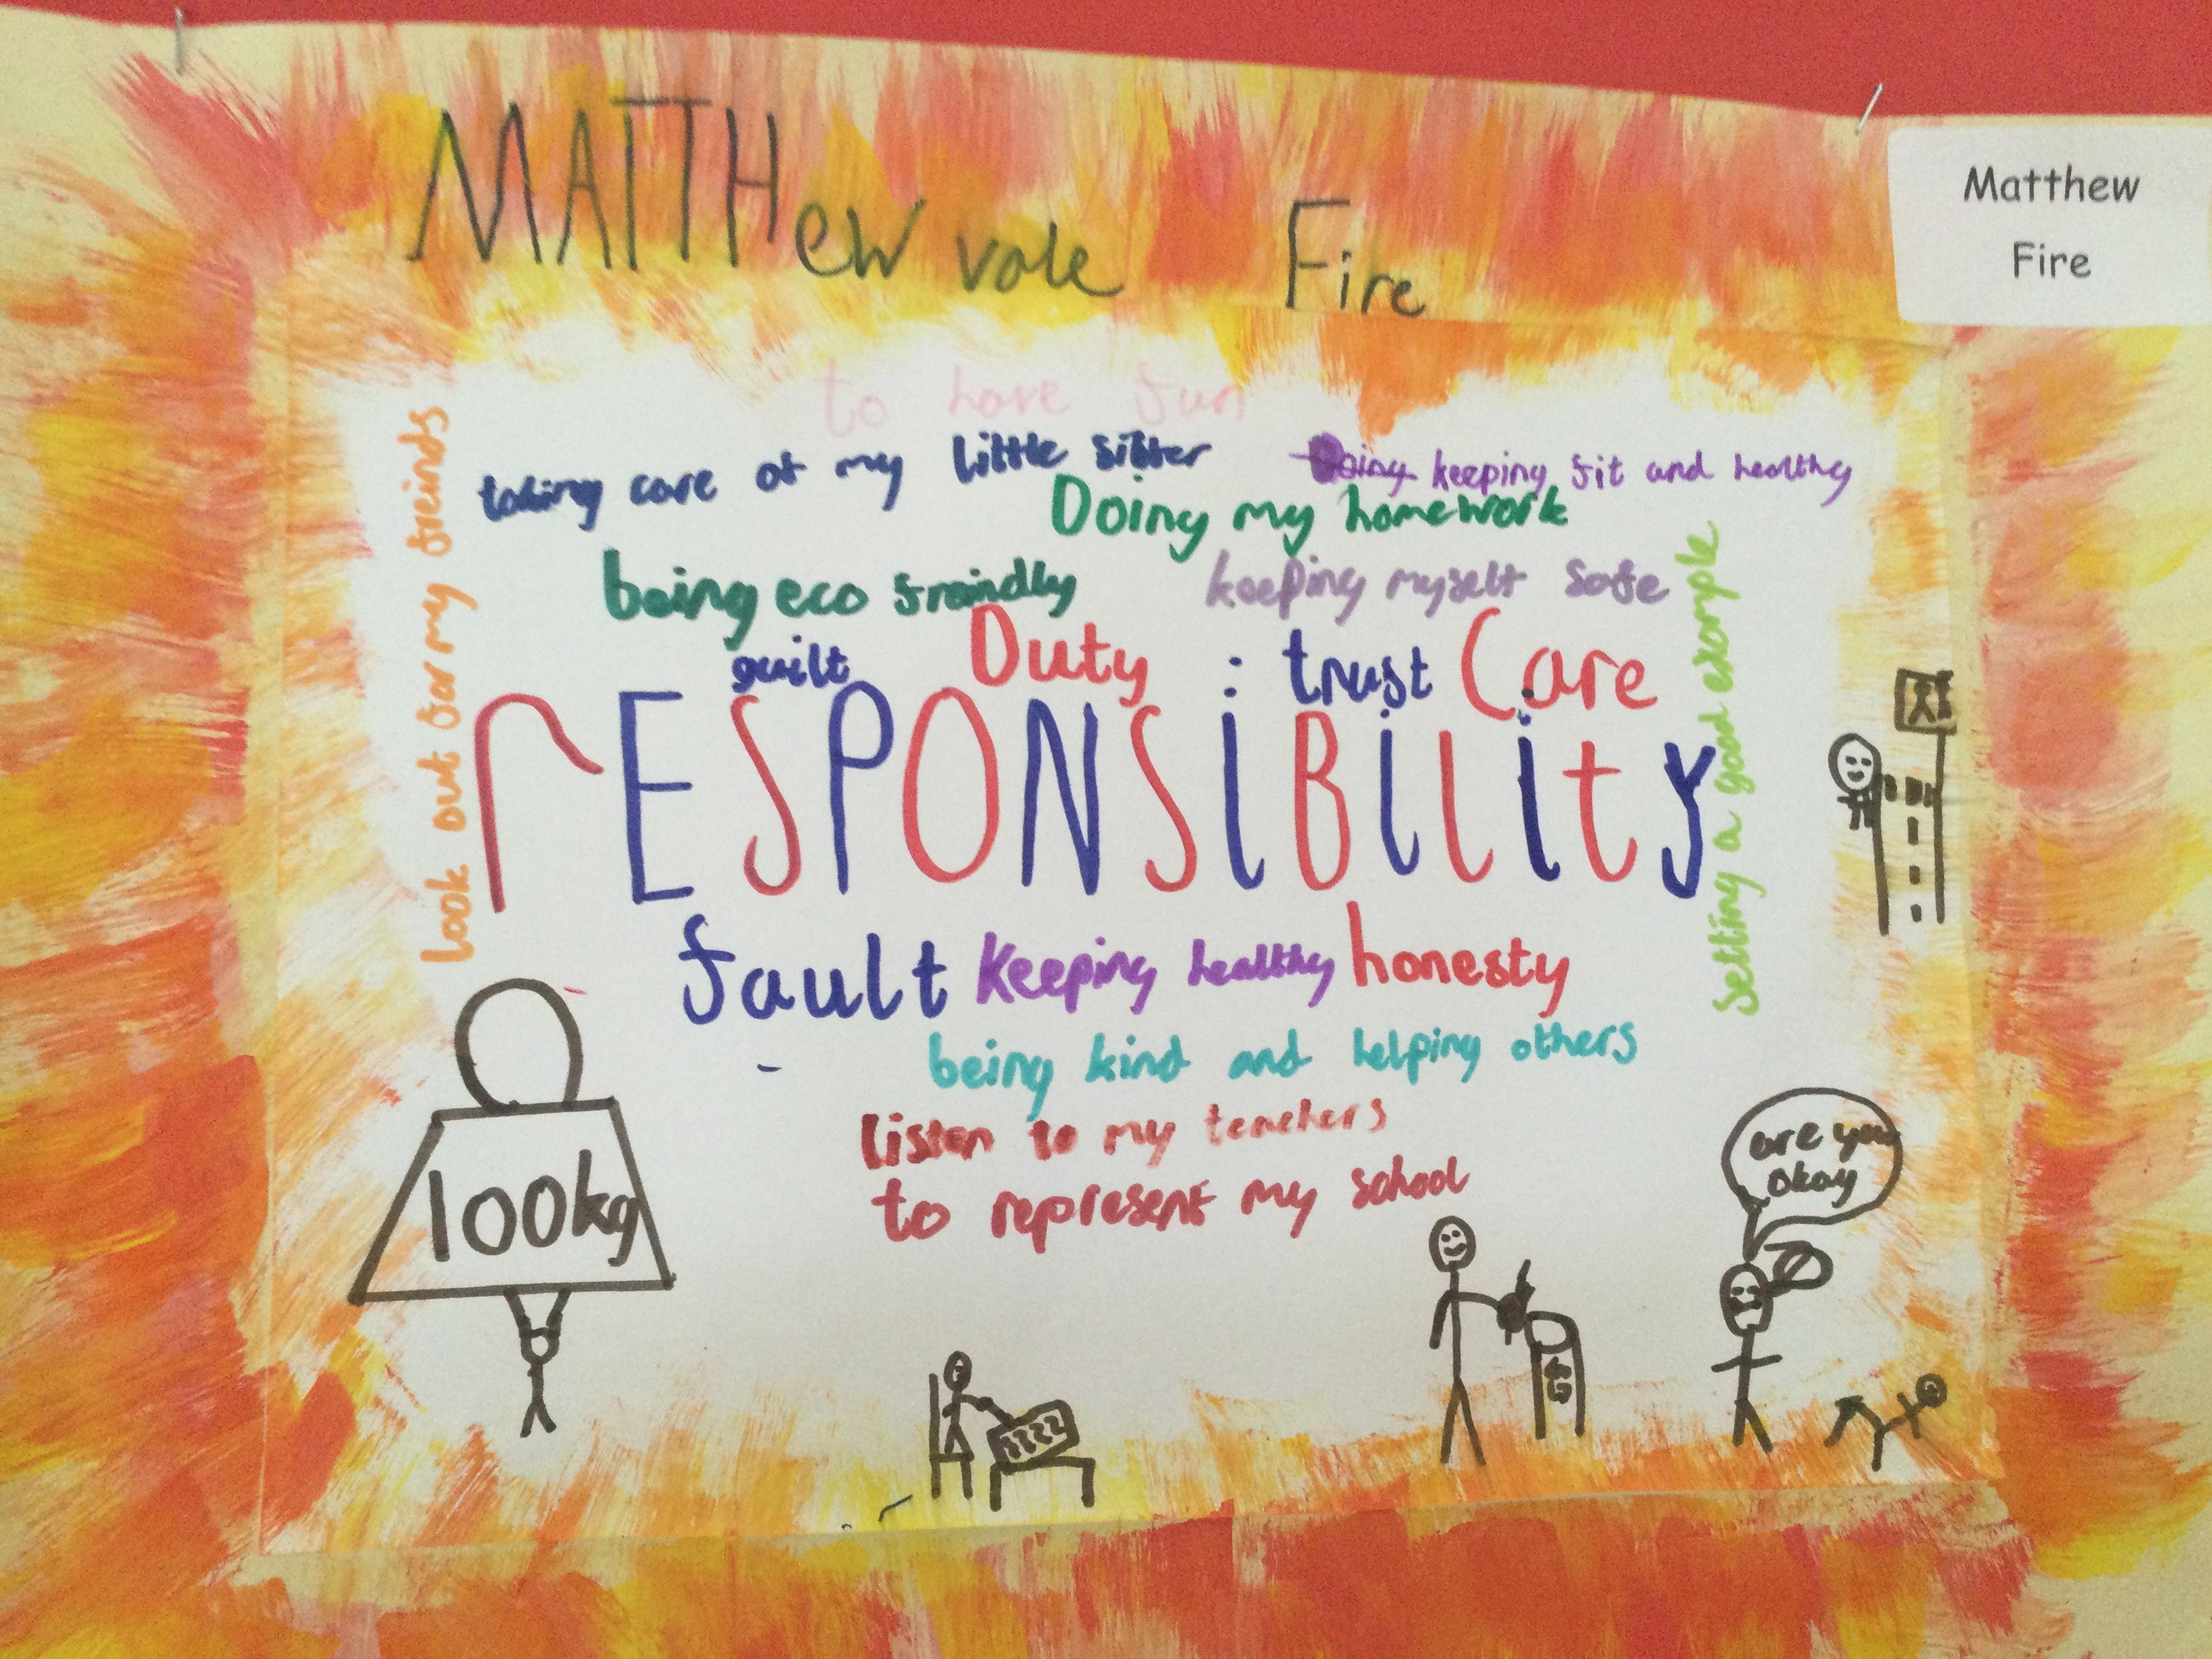 MATTHew vale Fire
Matthew
Fire
to have fun
taking care of my little sister
Doing keeping fit and healthy
Doing my homework
being eco freindly
keeping myself safe
look out for my freinds
setting a good example
guilt
Duty
trust
Care
rESPONSiBility
fault
Keeping healthy
honesty
being kind and helping others
listen to my teachers
to represent my school
100kg
are you
okay